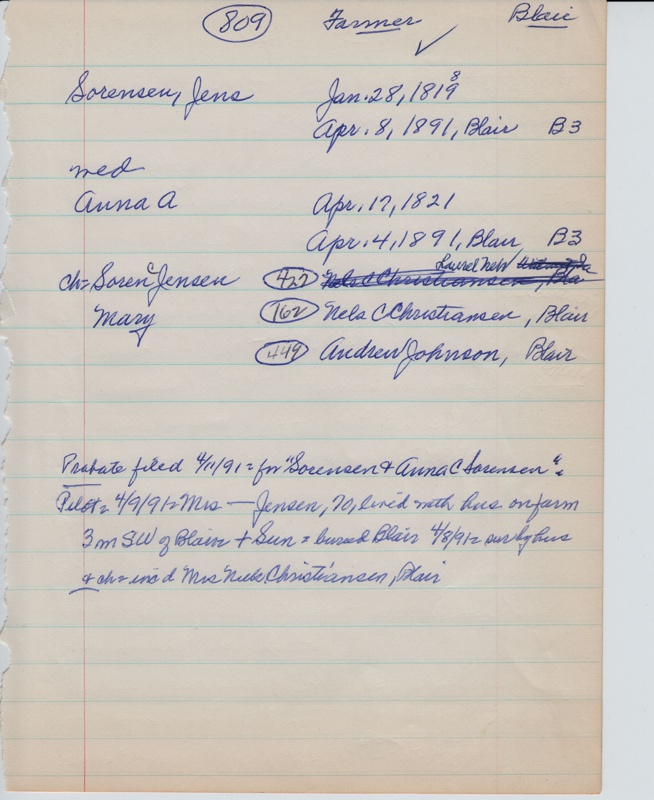 809 Farmer Blair
✓
Sorensen, Jens Jan. 28, 1819 8
Apr. 8, 1891, Blair B3
med
Anna A Apr. 17, 1821
Apr. 4, 1891, Blair B3
Laurel Nebr
ch= Soren C Jensen 422 Nels C Christiansen, Bla
Mary 162 Nels C Christiansen, Blair
449 Andrew Johnson, Blair
Probate filed 4/11/91= for "Sorensen & Anna C Sorensen"=
Pilot= 4/9/91= Mrs — Jensen, 70, lived with hus on farm
3 m SW of Blair= + Sun= buried Blair 4/8/91= sur by hus
& ch= inc'd Mrs Niels Christiansen, Blair